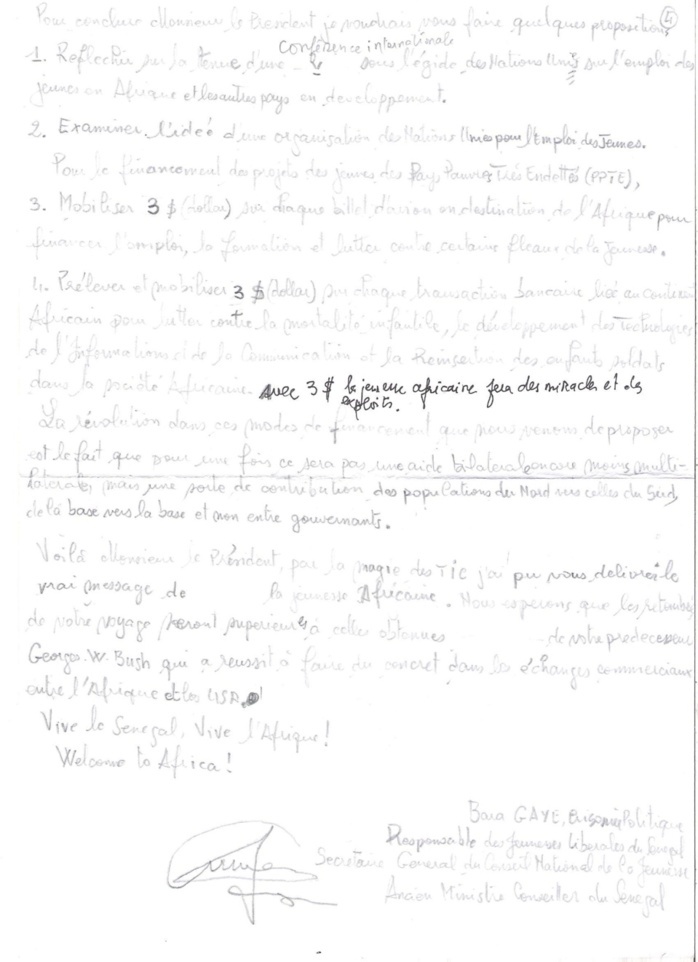 Pour conclure Monsieur le Président je voudrais vous faire quelques propositions
5
conférence internationale
1. Reflechir sur la tenue d'une sous l'égide des Nations Unis sur l'emploi des
jeunes en Afrique et les autres pays en developpement.
2. Examiner l'ideé d'une organisation des Nations Unies pour l'Emploi des Jeunes.
Pour le financement des projets des jeunes des Pays Pauvres Très Endettés (PPTE),
3. Mobiliser 3 $ (dollar) sur chaque billet d'avion en destination de l'Afrique pour
financer l'emploi, la formation et lutter contre certains fleaux de la Jeunesse.
4. Prélever et mobiliser 3 $ (dollar) sur chaque transaction bancaire lié au continent
Africain pour lutter contre la mortalité infantile, le développement des Technologies
de l'Informations et de la Communication et la Reinsertion des enfants soldats
dans la société Africaine. avec 3 $ la jeunesse africaine fera des miracles et des
exploits.
La révolution dans ces modes de financement que nous venons de proposer
est le fait que pour une fois ce sera pas une aide bilaterale encore moins multi-
laterale, mais une sorte de contribution des populations du Nord vers celles du Sud,
de la base vers la base et non entre gouvernants.
Voilà Monsieur le Président, par la magie des TIC j'ai pu vous délivrer le
vrai message de la jeunesse Africaine. Nous esperons que les retombées
de votre voyage seront superieures à celles obtenues de votre predecesseur
Georges W. Bush qui a reussit à faire du concret dans les échanges commerciaux
entre l'Afrique et les USA.!
Vive le Senegal, Vive l'Afrique!
Welcome to Africa!
Bara GAYE, Politique
Responsable des Jeunesses Liberales du Senegal
Secrétaire General du Conseil National de la Jeunesse
Ancien Ministre Conseiller du Senegal